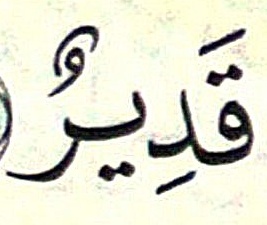 قَدِيرٌ